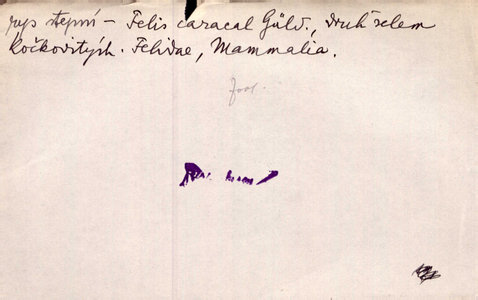 rys stepní – Felis caracal Güld., druh šelem
kočkovitých. Felidae, Mammalia.
Zool.